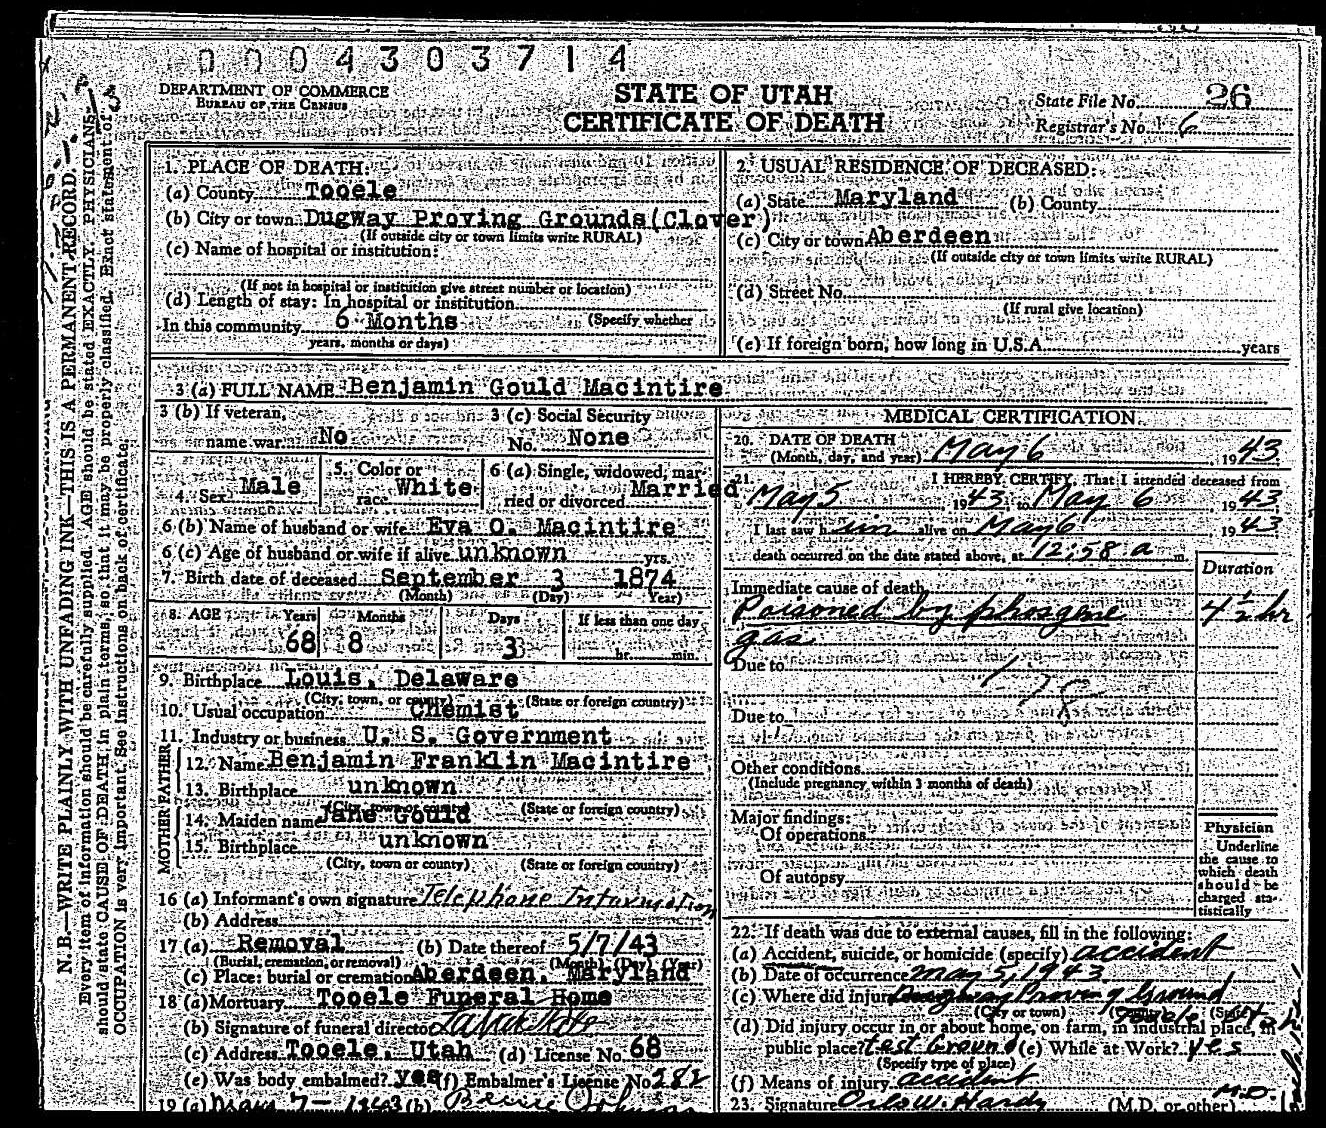 0004303714
DEPARTMENT OF COMMERCE
BUREAU OF THE CENSUS
STATE OF UTAH
CERTIFICATE OF DEATH
State File No. 26
Registrar's No. 6
N. B.—WRITE PLAINLY WITH UNFADING INK—THIS IS A PERMANENT RECORD.
Every item of information should be carefully supplied. AGE should be stated EXACTLY. PHYSICIANS
should state CAUSE OF DEATH in plain terms, so that it may be properly classified. Exact statement of
OCCUPATION is very important. See instructions on back of certificate.
1. PLACE OF DEATH:
(a) County Tooele
(b) City or town Dugway Proving Grounds(Clover)
(If outside city or town limits write RURAL)
(c) Name of hospital or institution:
(If not in hospital or institution give street number or location)
(d) Length of stay: In hospital or institution
(Specify whether
In this community 6 Months
years, months or days)
2. USUAL RESIDENCE OF DECEASED:
(a) State Maryland (b) County
(c) City or town Aberdeen
(If outside city or town limits write RURAL)
(d) Street No.
(If rural give location)
(e) If foreign born, how long in U.S.A. years
3 (a) FULL NAME Benjamin Gould Macintire
3 (b) If veteran, name war No
3 (c) Social Security No. None
4. Sex Male
5. Color or race White
6 (a) Single, widowed, married or divorced Married
6 (b) Name of husband or wife Eva O. Macintire
6 (c) Age of husband or wife if alive unknown yrs.
7. Birth date of deceased September 3 1874
(Month) (Day) (Year)
8. AGE Years Months Days If less than one day
68 8 3 hr. min.
9. Birthplace Louis, Delaware
(City, town, or county) (State or foreign country)
10. Usual occupation Chemist
11. Industry or business U. S. Government
FATHER
12. Name Benjamin Franklin Macintire
13. Birthplace unknown
(City, town or county) (State or foreign country)
MOTHER
14. Maiden name Jane Gould
15. Birthplace unknown
(City, town or county) (State or foreign country)
16 (a) Informant's own signature Telephone Information
(b) Address
17 (a) Removal (b) Date thereof 5/7/43
(Burial, cremation, or removal) (Month) (Day) (Year)
(c) Place: burial or cremation Aberdeen, Maryland
18 (a) Mortuary Tooele Funeral Home
(b) Signature of funeral director
(c) Address Tooele, Utah (d) License No. 68
(e) Was body embalmed? yes (f) Embalmer's License No 282
19 (a) May 7 - 1943 (b)
MEDICAL CERTIFICATION
20. DATE OF DEATH
(Month, day, and year) May 6, 1943
21. I HEREBY CERTIFY, That I attended deceased from
May 5, 1943, to May 6, 1943
I last saw him alive on May 6 1943
death occurred on the date stated above, at 12:58 a m.
Duration
Immediate cause of death
Poisoned by phosgene 4 1/2 hr
gas
Due to
Due to
Other conditions
(Include pregnancy within 3 months of death)
Major findings:
Of operations
Of autopsy
Physician
Underline
the cause to
which death
should be
charged sta-
tistically
22. If death was due to external causes, fill in the following:
(a) Accident, suicide, or homicide (specify) accident
(b) Date of occurrence May 5, 1943
(c) Where did injury Dugway Proving Ground
(City or town) Tooele (State)
(d) Did injury occur in or about home, on farm, in industrial place, in
public place? test Ground (e) While at Work? yes
(Specify type of place)
(f) Means of injury accident
23. Signature Orls W. Hardy M.D.
(M.D. or other)